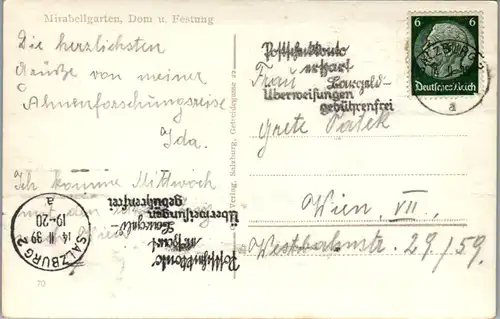 Mirabellgarten, Dom u. Festung
Die herzlichsten
Grüße von meiner
Ahnenforschungsreise
Ida.
Ich komme Mittwoch
Wien
Verlag, Salzburg, Getreidegasse 22
70
Postscheckkonto
erspart
Bargeld-
Überweisungen
gebührenfrei
6 6
Deutsches Reich
SALZBURG 2
a
Frau
Grete Patek
Wien, VII.
Westbahnstr. 29/59.
Postscheckkonto
erspart
Bargeld-
Überweisungen
gebührenfrei
SALZBURG 2
14 II 39
19-20
a